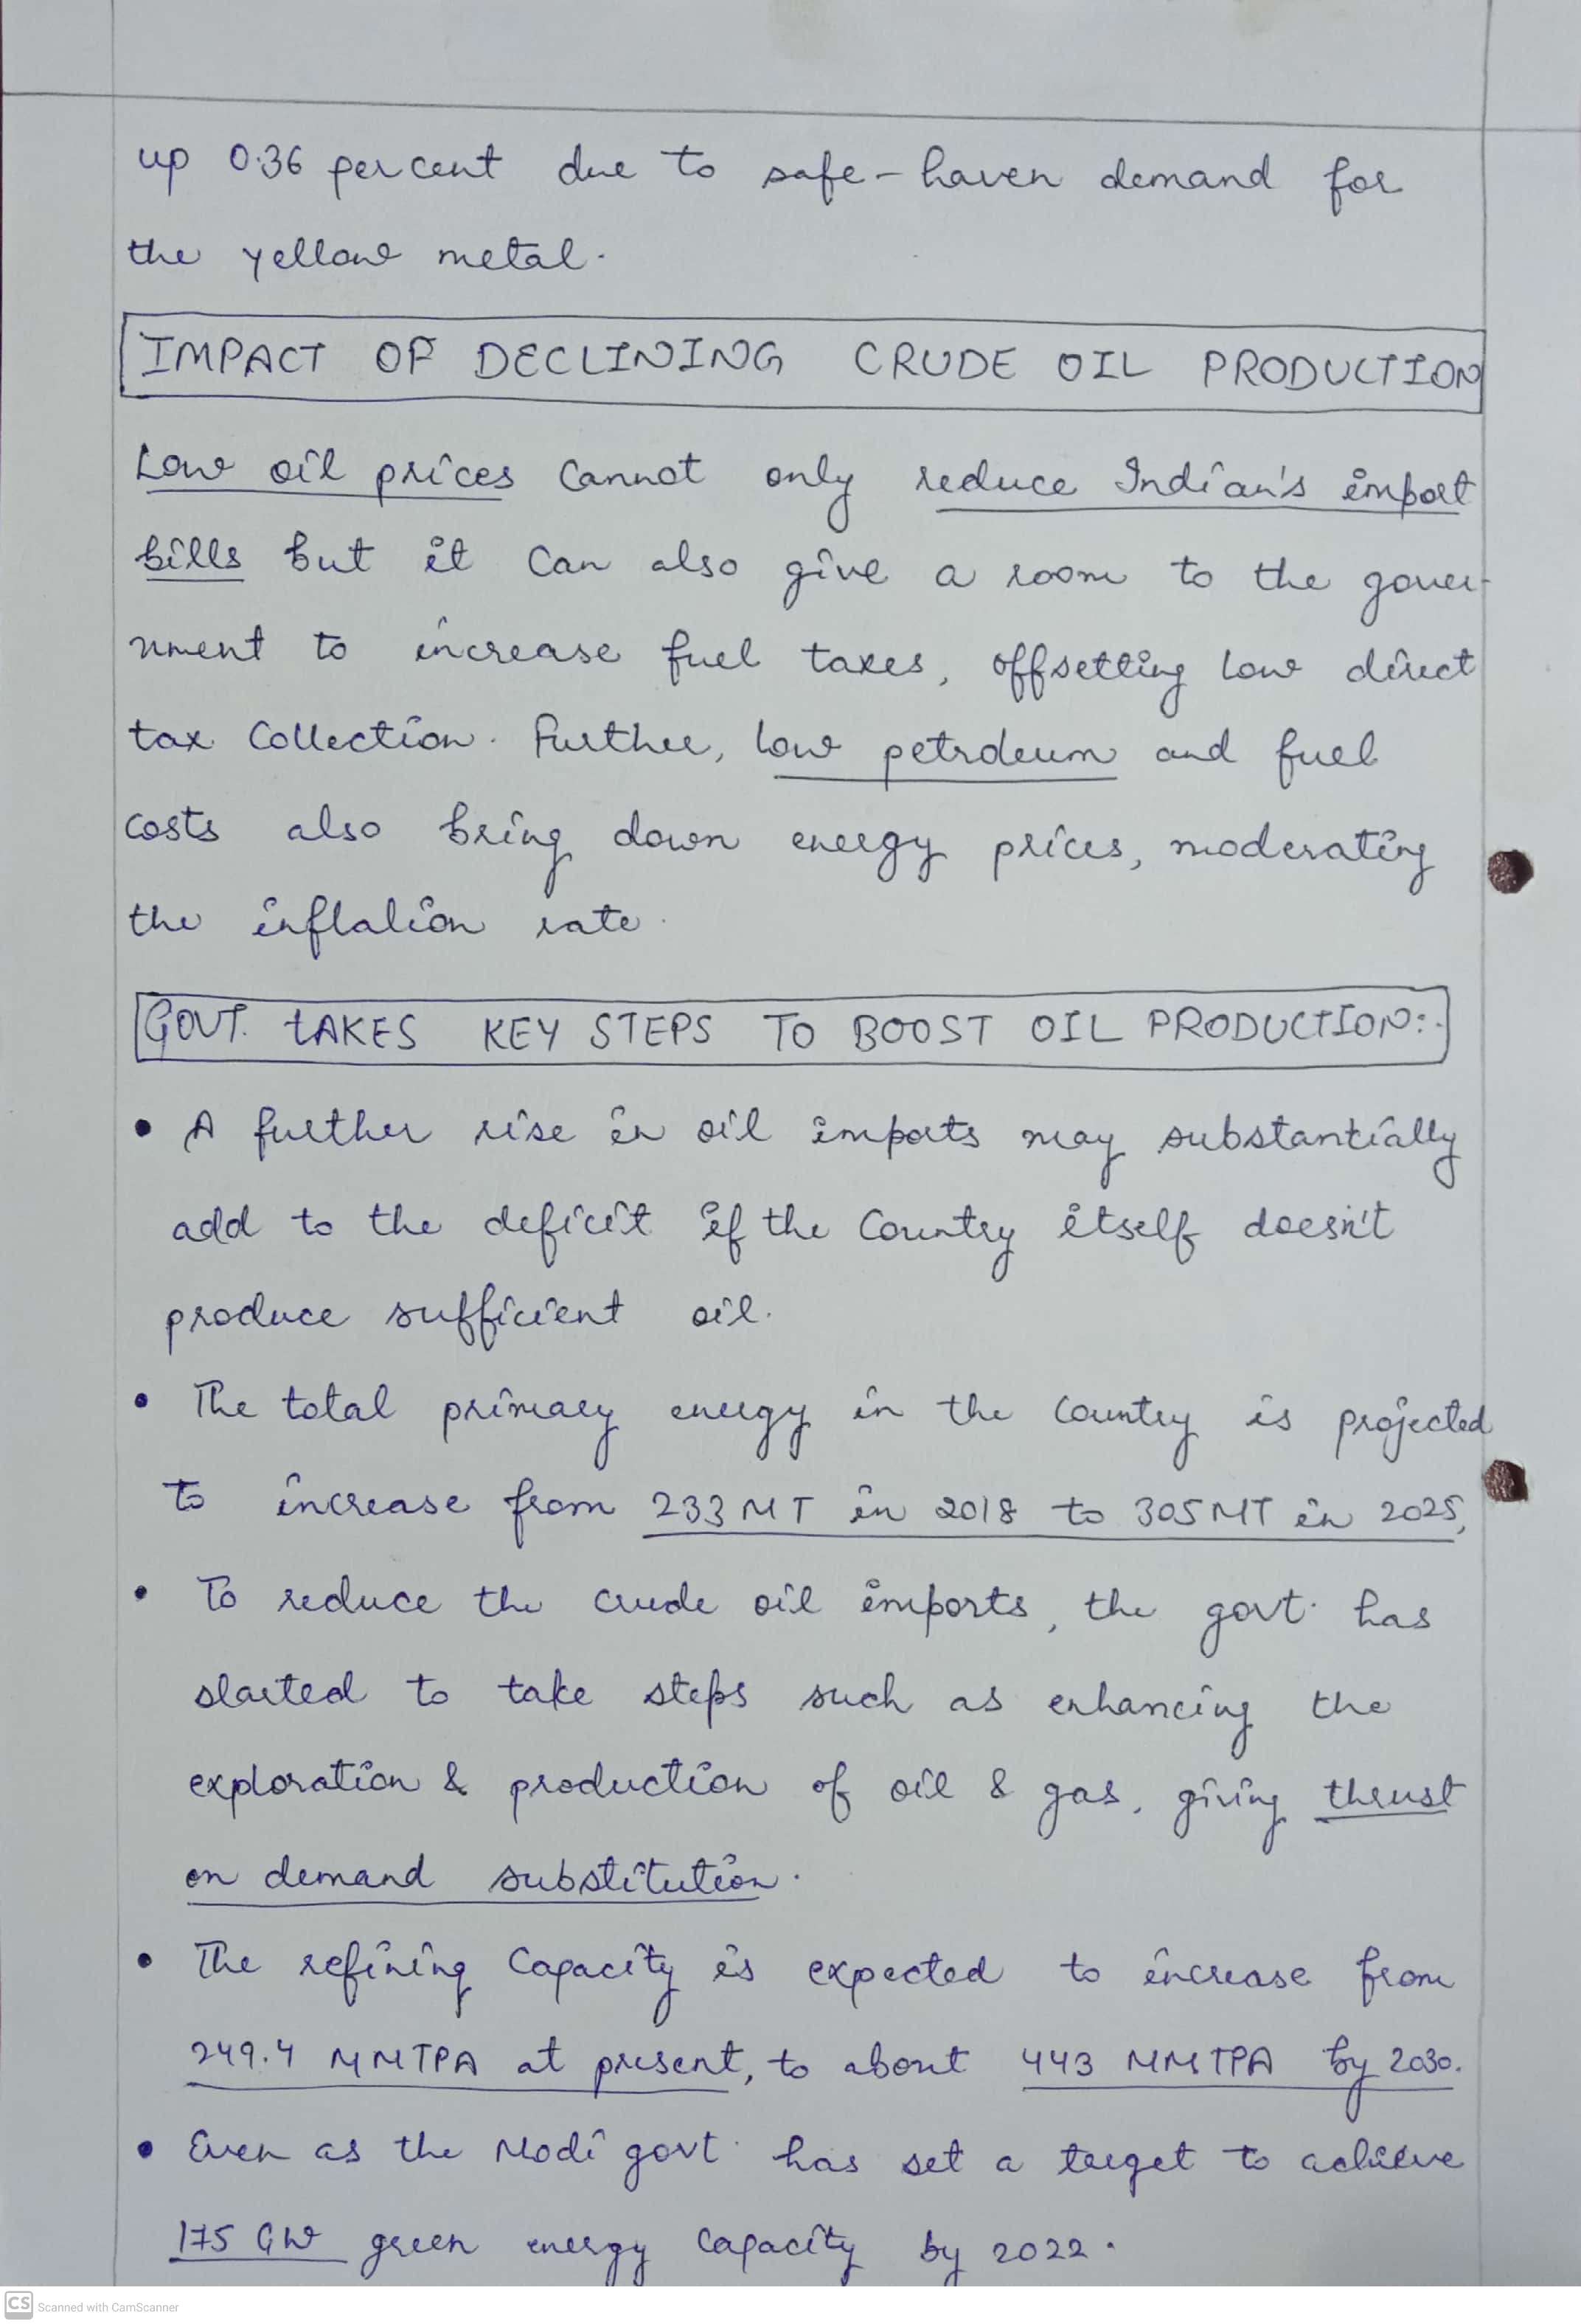 up 0.36 percent due to safe-haven demand for
the yellow metal.
IMPACT OF DECLINING CRUDE OIL PRODUCTION
Low oil prices cannot only reduce Indian's import
bills but it can also give a room to the gover-
nment to increase fuel taxes, offsetting low direct
tax collection. Further, low petroleum and fuel
costs also bring down energy prices, moderating
the inflation rate.
GOVT. TAKES KEY STEPS TO BOOST OIL PRODUCTION:-
• A further rise in oil imports may substantially
add to the deficit if the country itself doesn't
produce sufficient oil.
• The total primary energy in the country is projected
to increase from 233 MT in 2018 to 305 MT in 2025,
• To reduce the crude oil imports, the govt. has
started to take steps such as enhancing the
exploration & production of oil & gas, giving thrust
on demand substitution.
• The refining capacity is expected to increase from
249.4 MMTPA at present, to about 443 MMTPA by 2030.
• Even as the Modi govt. has set a target to achieve
175 GW green energy capacity by 2022.
CS Scanned with CamScanner